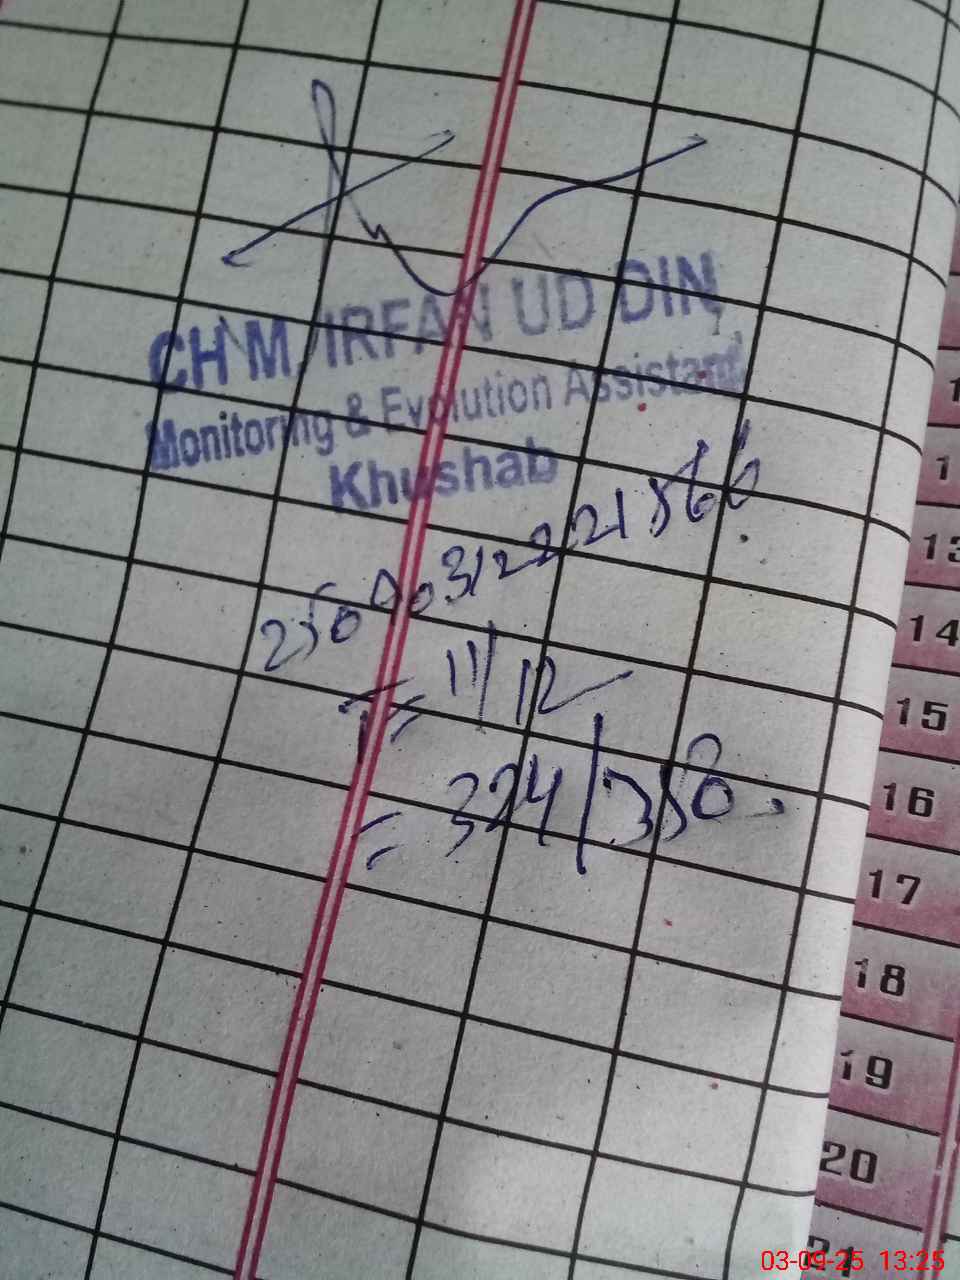 CH M. IRFAN UD DIN
Monitoring & Evolution Assistant
Khushab
25090312221866
T= 11/12
= 324/380.
1
1
13
14
15
16
17
18
19
20
21
03-09-25 13:25